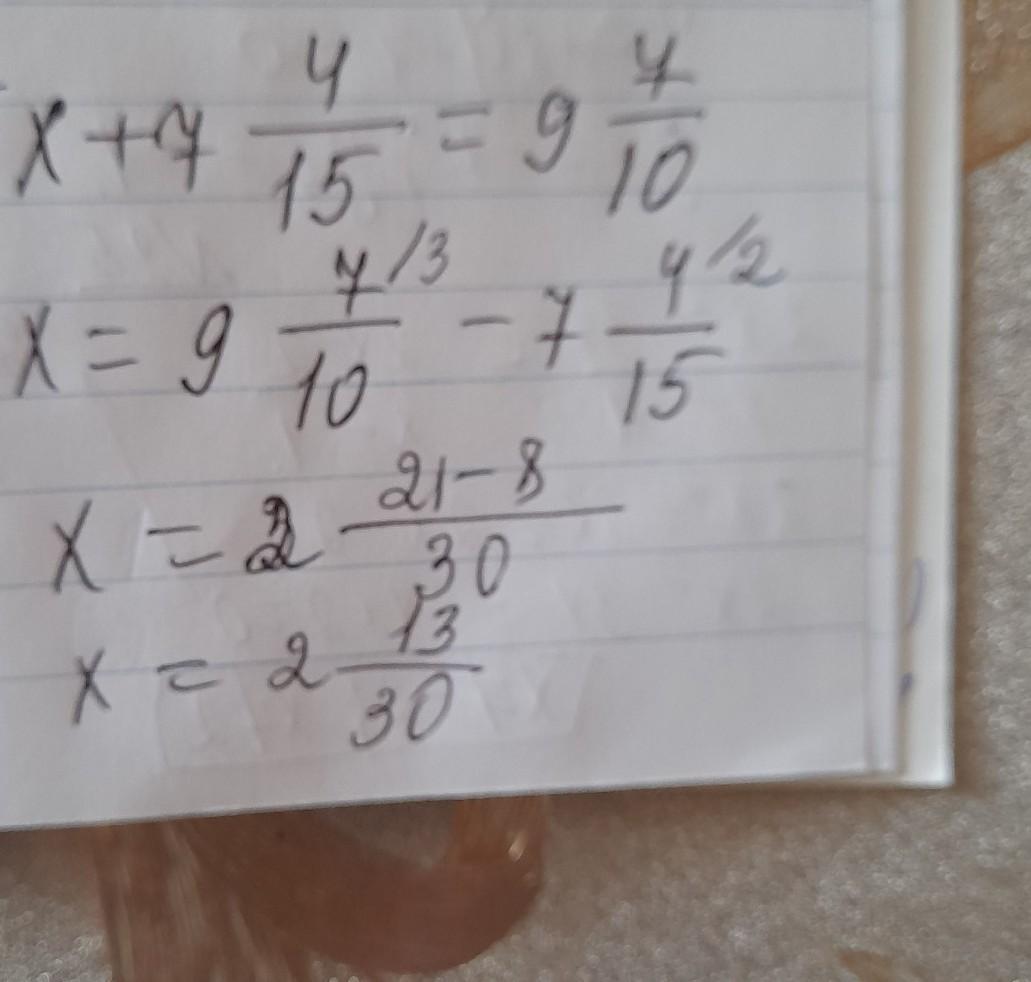 x + 7 4/15 = 9 7/10
x = 9 7/10 /3 - 7 4/15 /2
x = 2 21-8/30
x = 2 13/30